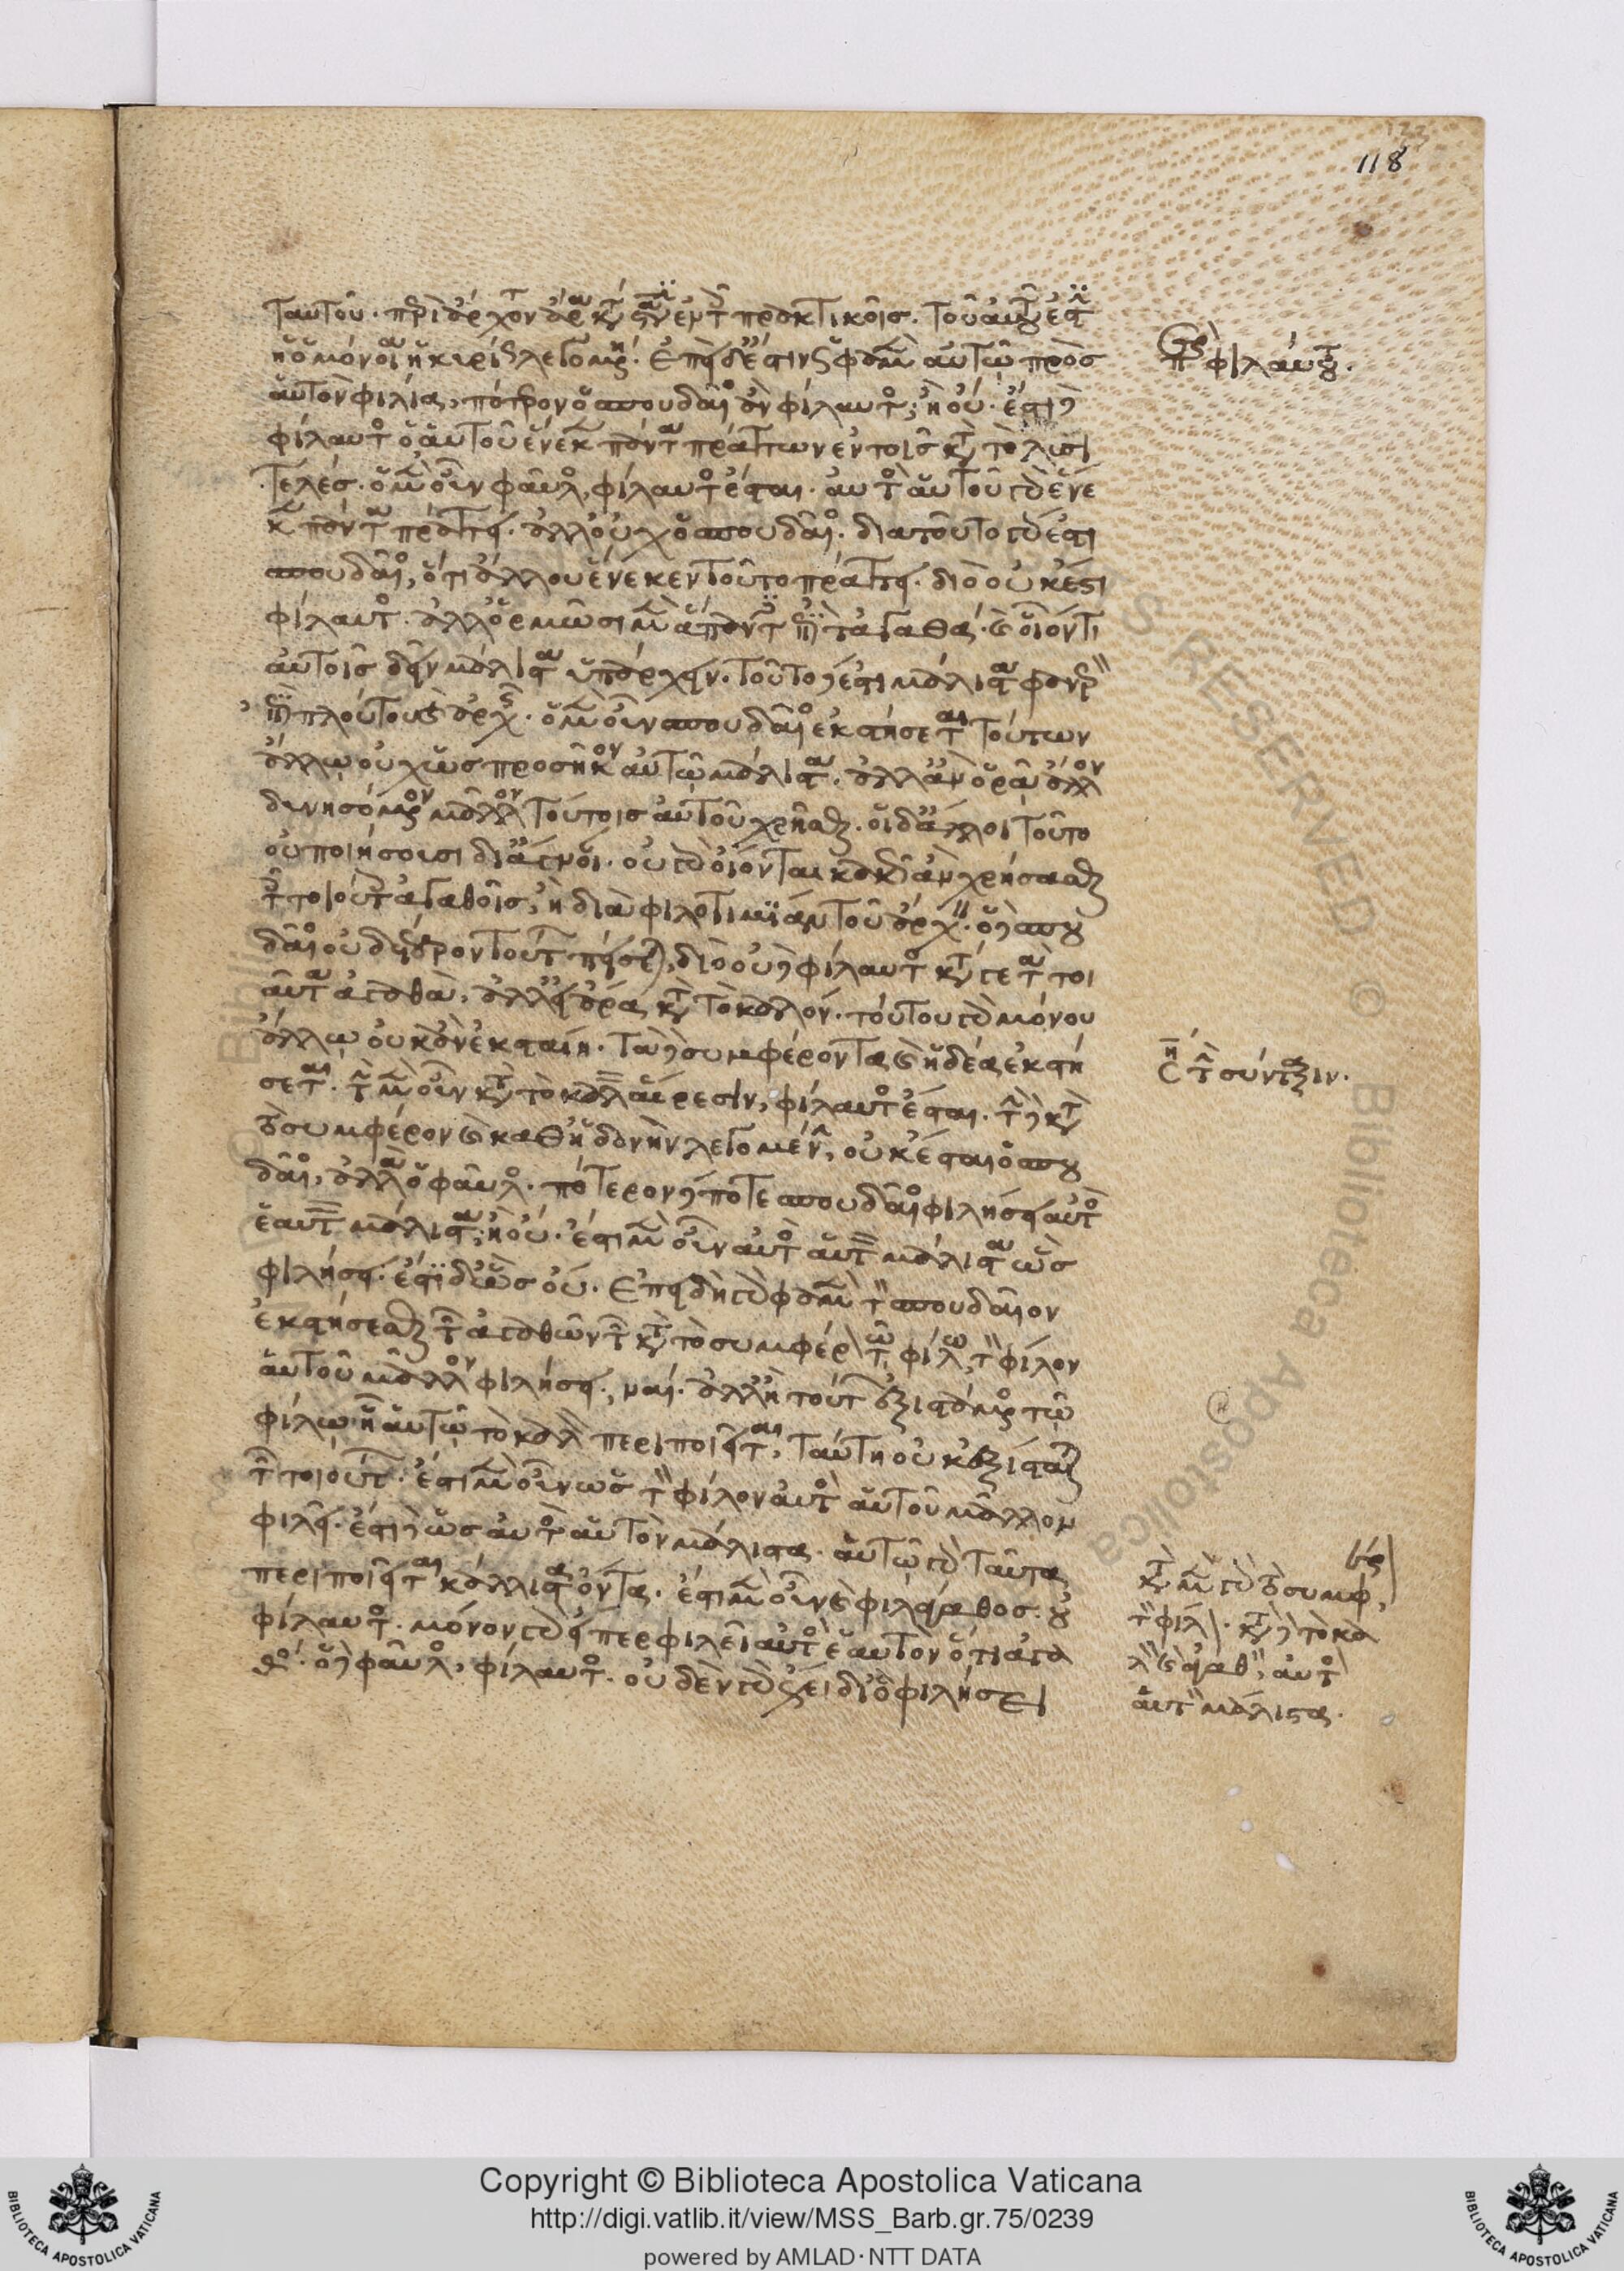 ταυτοῦ· περὶ ἄρχοντ ἄρα κατὰ τὴν ἐν τοῖς πρακτικοῖς τοῦ αὐτοῦ ἐστὶν
ἡ ὁμόνοια ἡ κυρίως λεγομένη. ἐπεὶ δέ ἐστιν ὥς φαμεν αὐτῷ πρὸς
αὑτὸν φιλία, πότερον ὁ σπουδαῖος ἂν φίλαυτος; ἢ οὔ. ἔστι δὲ
φίλαυτος ὁ αὑτοῦ ἕνεκα πάντα πράττων ἐν τοῖς κατὰ τὸ λυσι
τελές. ὁ μὲν οὖν φαῦλος, φίλαυτός ἐσται. αὐτὸς αὑτοῦ γὰρ ἕνε
κα πάντα πράττει. ἀλλ' οὐχ ὁ σπουδαῖος. διὰ τοῦτο γάρ ἐστι
σπουδαῖος, ὅτι ἄλλου ἕνεκεν τοῦτο πράττει. διὸ οὐκ ἔστι
φίλαυτος. ἀλλ' ὁρμῶσι μὲν ἅπαντες ἐπὶ τἀγαθά· καὶ οἴονται
αὑτοῖς δεῖν μάλιστα ὑπάρχειν. τοῦτο δ' ἐστι μάλιστα φανερὸν
ἐπὶ πλούτου καὶ ἀρχῆς. ὁ μὲν οὖν σπουδαῖος ἐκστήσεται τούτων
ἄλλῳ οὐχ ὡς προσῆκον αὑτῷ μάλιστα. ἀλλ' ἂν ὁρᾷ ἄλλον
δυνησόμενον μᾶλλον τούτοις αὑτοῦ χρῆσθαι. οἱ δ' ἄλλοι τοῦτο
οὐ ποιήσουσι δι' ἄγνοιαν. οὐ γὰρ οἴονται κακῶς ἂν χρήσασθαι
τοῖς τοιούτοις ἀγαθοῖς, ἢ διὰ φιλοτιμίαν τοῦ ἄρχειν. ὁ δὲ σπου
δαῖος οὐδέτερον τούτων πείσεται, διὸ οὐδὲ φίλαυτος κατά γε τὰ τοι
αῦτα ἀγαθά, ἀλλ' εἴπερ ἄρα κατὰ τὸ καλόν. τούτου γὰρ μόνου
ἄλλῳ οὐκ ἂν ἐκσταίη. τὰ δὲ συμφέροντα καὶ ἡδέα ἐκστή
σεται. τὴν μὲν οὖν κατὰ τὸ καλὸν αἵρεσιν, φίλαυτος ἔσται. τὴν δὲ κατὰ
τὸ συμφέρον καὶ καθ' ἡδονὴν λεγομένην, οὐκ ἔσται ὁ σπου
δαῖος, ἀλλὰ ὁ φαῦλος. πότερον δέ ποτε σπουδαῖος φιλήσει αὐτὸς
ἑαυτὸν μάλιστα; ἢ οὔ. ἔστι μὲν οὖν αὐτὸς αὑτὸν μάλιστα ὡς
φιλήσει. ἔστι δ' ὡς οὔ. ἐπειδὴ γὰρ φαμὲν τὸν σπουδαῖον
ἐκστήσεσθαι τῶν ἀγαθῶν τῶν κατὰ τὸ συμφέρον τῷ φίλῳ, τὸν φίλον
αὑτοῦ μᾶλλον φιλήσει, ναί. ἀλλ' ᾗ τούτων ἐξιστάμενος τῷ
φίλῳ ἢ αὑτῷ τὸ καλὸν περιποιεῖται, ταύτῃ οὐκ ἐξίσταται
τῶν τοιούτων. ἔστι μὲν οὖν ὡς τὸν φίλον αὐτὸς αὑτοῦ μᾶλλον
φιλεῖ. ἔστι δ' ὡς αὐτὸς αὑτὸν μάλιστα. αὑτῷ γὰρ ταῦτα
περιποιεῖται κάλλιστα ὄντα. ἔστι μὲν οὖν καὶ φιλάγαθος. οὐ
φίλαυτος. μόνον γὰρ εἴπερ φιλεῖ αὐτὸς ἑαυτὸν ὅτι ἀγα
θός. ὁ δὲ φαῦλος, φίλαυτος. οὐδὲν γὰρ ἔχει δι' ὃ φιλήσει
118
περὶ φιλαύτου.
τὴν σύνταξιν.
κατὰ μὲν γὰρ τὸ συμφέρον,
τὸν φίλον. κατὰ δὲ τὸ κα
λὸν καὶ ἀγαθόν, αὐτὸς
αὑτὸν μάλιστα.
Copyright © Biblioteca Apostolica Vaticana
http://digi.vatlib.it/view/MSS_Barb.gr.75/0239
powered by AMLAD·NTT DATA